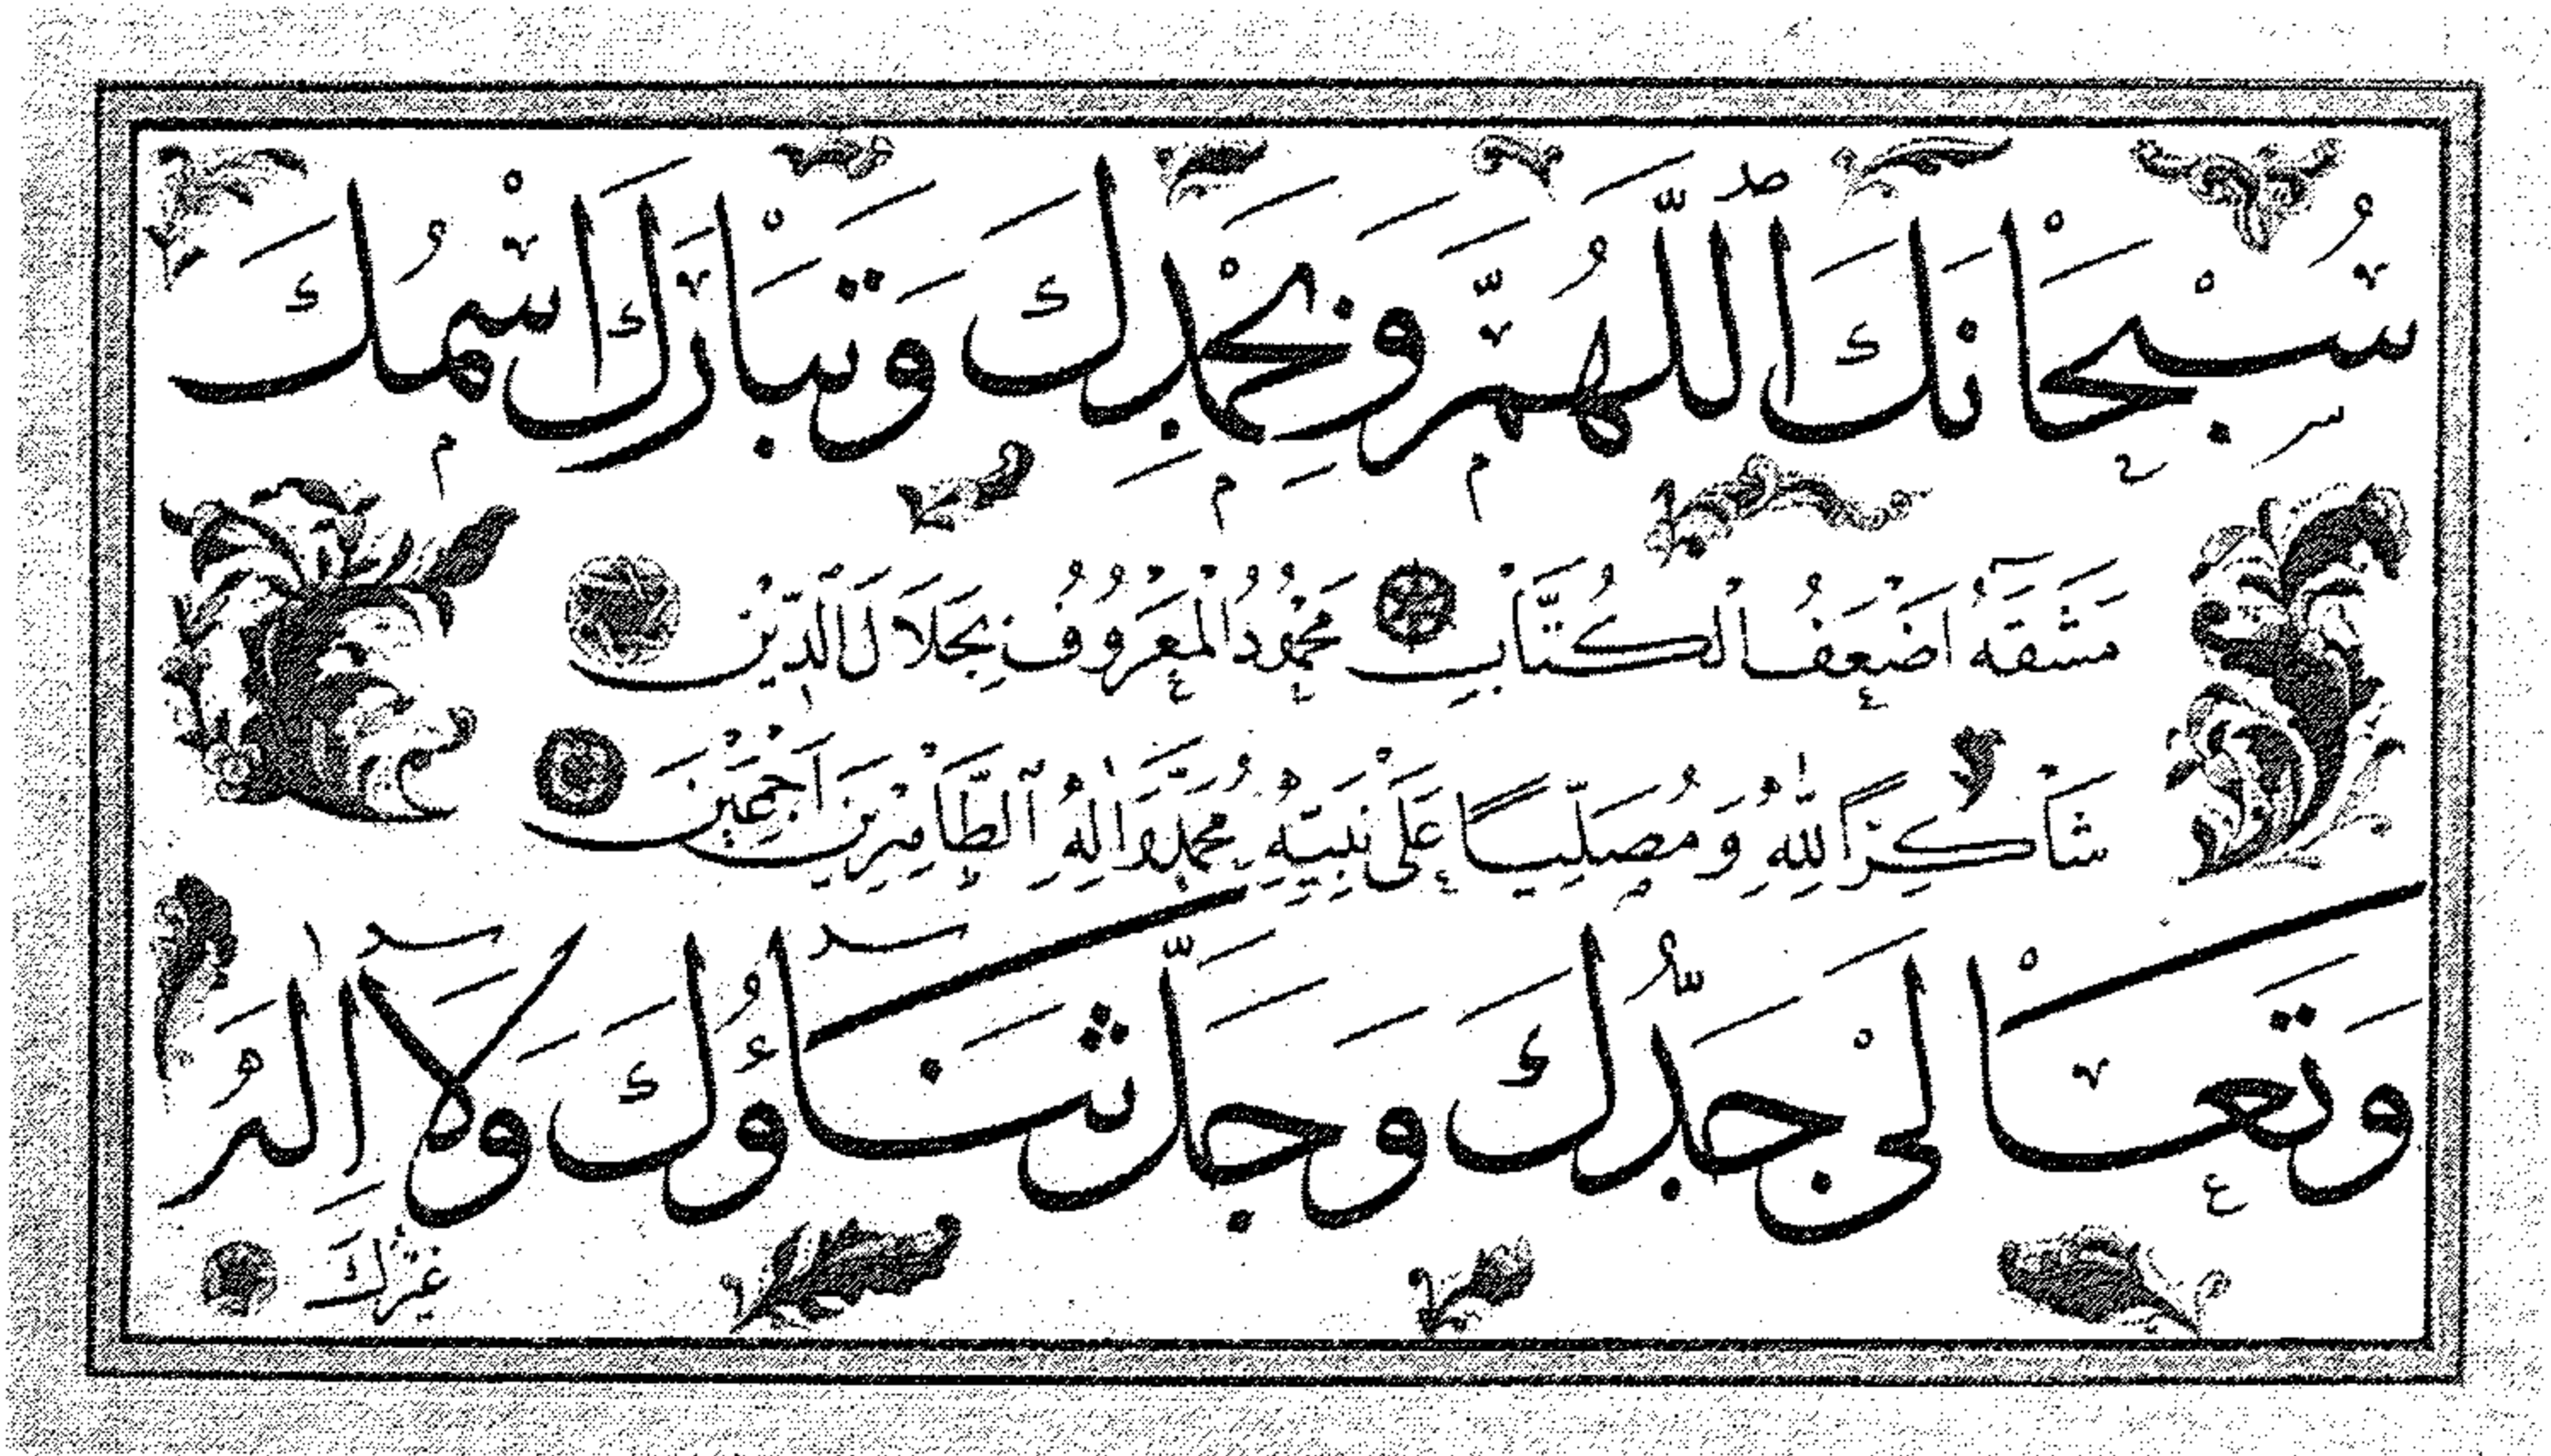 سُبْحَانَكَ اللّٰهُمَّ وَبِحَمْدِكَ وَتَبَارَكَ اسْمُكَ
مَشَقَهُ اَضْعَفُ الْكُتَّابِ مَحْمُودُ الْمَعْرُوفُ بِجَلَالِ الدِّيْنِ
شَاكِرًا لِلّٰهِ وَمُصَلِّيًا عَلٰى نَبِيِّهِ مُحَمَّدٍ وَاٰلِهِ الطَّاهِرِينَ اَجْمَعِيْنَ
وَتَعَالٰى جَدُّكَ وَجَلَّ ثَنَاؤُكَ وَلَا اِلٰهَ
غَيْرُكَ